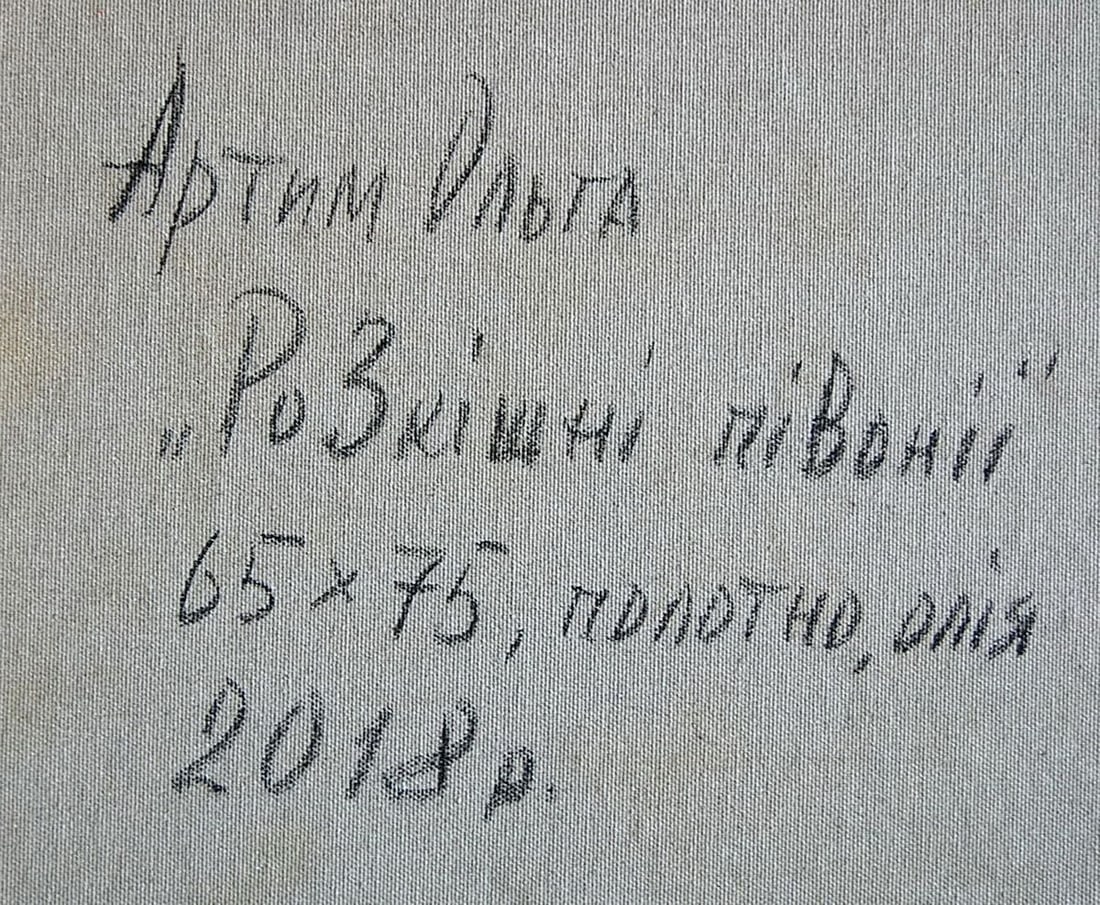 Артим Ольга
„Розкішні півонії"
65 х 75, полотно, олія
2018 р.